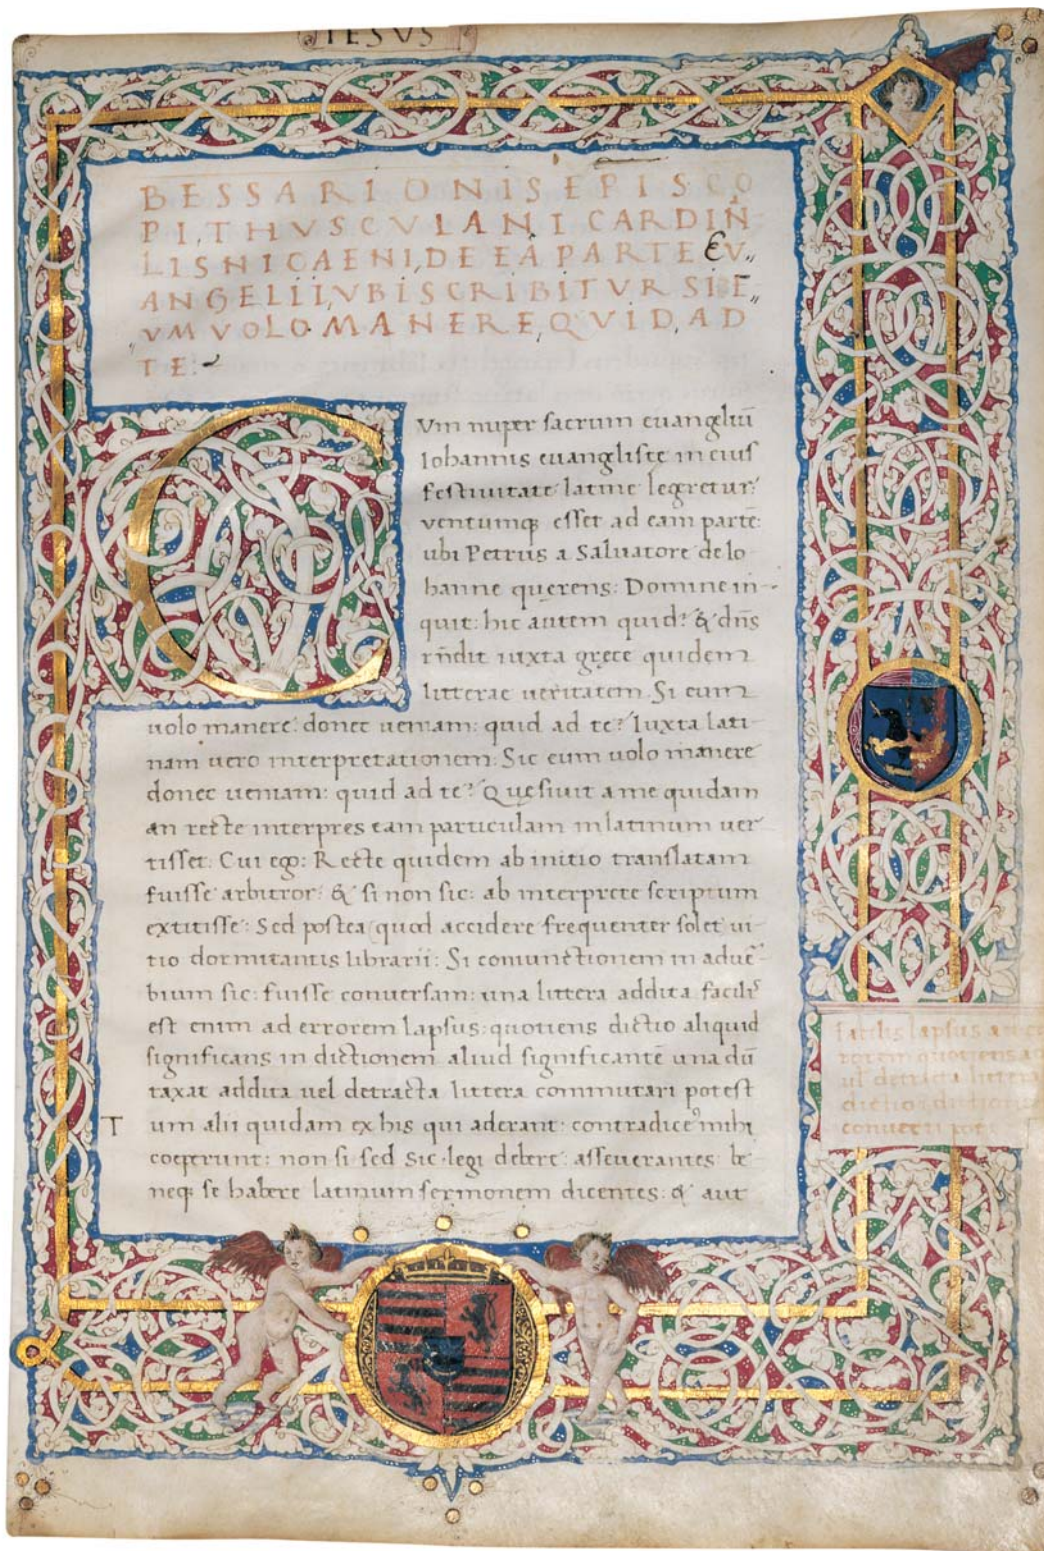 IESVS
BESSARIONIS EPISCO
PI, THVSCVLANI CARDIÑ-
LIS NICAENI, DE EA PARTE EV„
ANGELII, VBI SCRIBITVR SI E„
„VM VOLO MANERE, QVID, AD
TE:~
Vm nuper sacrum euangliū
Iohannis euangliste in eius
festiuitate latine legretur:
ventumq; esset ad eam partē:
ubi Petrus a Saluatore de Io-
hanne querens: Domine in-
quit: hic autem quid? & dn̄s
rn̄dit iuxta grece quidem
litterae ueritatem. Si eum
uolo manere donec ueniam: quid ad te? Iuxta lati-
nam uero interpretationem: Sic eum uolo manere
donec ueniam: quid ad te? Quęsiuit a me quidam
an recte interpres eam particulam in latinum uer-
tisset. Cui ego: Recte quidem ab initio translatam
fuisse arbitror: & si non sic: ab interprete scriptum
extitisse: Sed postea (quod accidere frequenter solet ui-
tio dormitantis librarii: Si coniunctionem in aduē-
bium sic: fuisse conuersam: una littera addita facil'
est enim ad errorem lapsus: quotiens dictio aliquid
significans in dictionem aliud significantē una dū
taxat addita uel detracta littera commutari potest
T um alii quidam ex his qui aderant: contradice⁹ mihi
coeperunt: non si sed Sic legi debere: asseuerantes be-
neq; se habere latinum sermonem dicentes: & aut
Facilis lapsus
quotiens
ul detracta littera
dictio:
conuerti